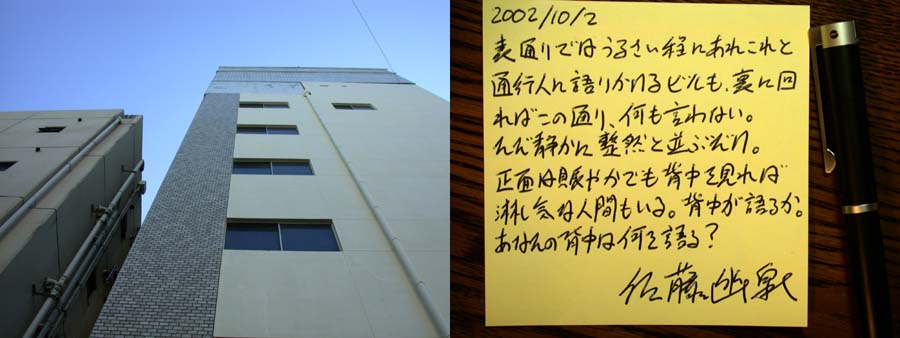 2002/10/2
表通りではうるさい程にあれこれと
通行人に語りかけるビルも、裏に回
ればこの通り、何も言わない。
ただ静かに整然と並ぶだけ。
正面は賑やかでも背中を見れば
淋し気な人間もいる。背中が語るか。
あなたの背中は何を語る？
佐藤